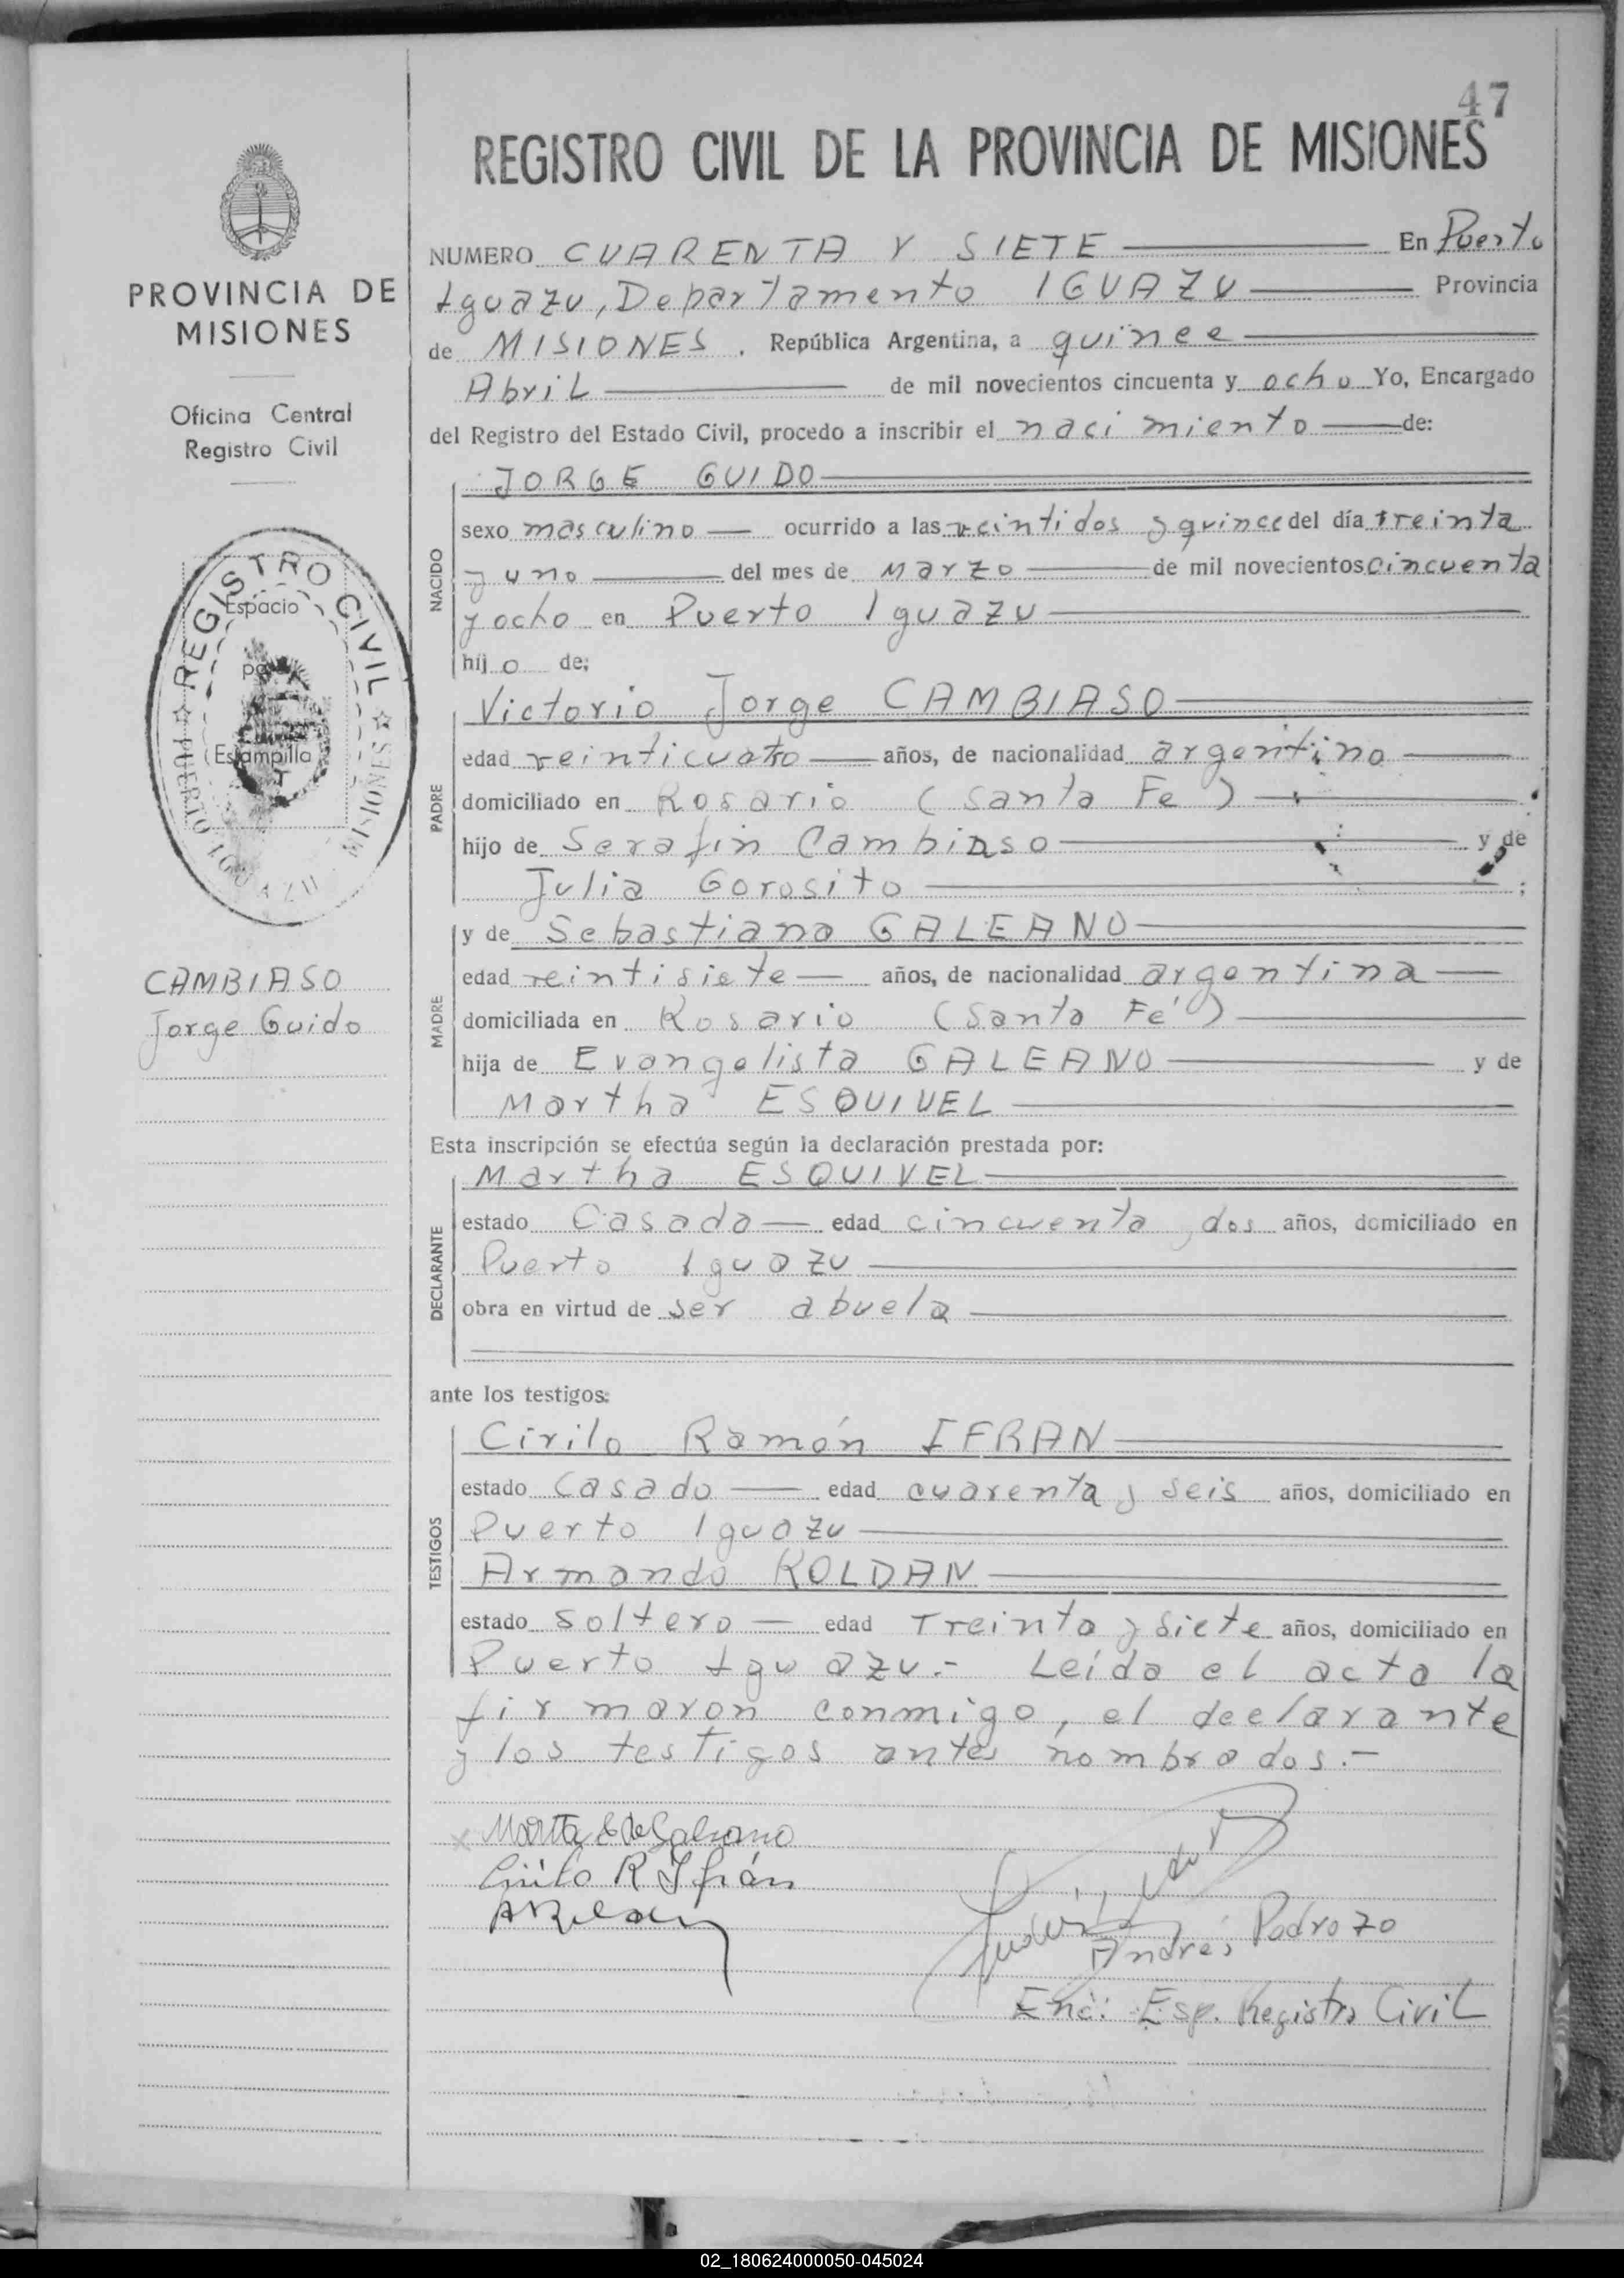 47
REGISTRO CIVIL DE LA PROVINCIA DE MISIONES
PROVINCIA DE
MISIONES
Oficina Central
Registro Civil
REGISTRO CIVIL
PUERTO IGUAZU MISIONES
Espacio
para
Estampilla
CAMBIASO
Jorge Guido
NUMERO CUARENTA Y SIETE En Puerto
Iguazu, Departamento IGUAZU Provincia
de MISIONES. República Argentina, a quince
Abril de mil novecientos cincuenta y ocho Yo, Encargado
del Registro del Estado Civil, procedo a inscribir el nacimiento de:
NACIDO
JORGE GUIDO
sexo masculino ocurrido a las veintidos y quince del día treinta
y uno del mes de Marzo de mil novecientos cincuenta
y ocho en Puerto Iguazu
hijo de;
PADRE
Victorio Jorge CAMBIASO
edad veinticuatro años, de nacionalidad argentino
domiciliado en Rosario (Santa Fe)
hijo de Serafin Cambiaso y de
Julia Gorosito ;
MADRE
y de Sebastiana GALEANO
edad veintisiete años, de nacionalidad argentina
domiciliada en Rosario (Santa Fé)
hija de Evangelista GALEANO y de
Martha ESQUIVEL
Esta inscripción se efectúa según la declaración prestada por:
DECLARANTE
Martha ESQUIVEL
estado Casada edad cincuenta y dos años, domiciliado en
Puerto Iguazu
obra en virtud de ser abuela
ante los testigos:
TESTIGOS
Cirilo Ramón IFRAN
estado Casado edad cuarenta y seis años, domiciliado en
Puerto Iguazu
Armando ROLDAN
estado Soltero edad Treinta y siete años, domiciliado en
Puerto Iguazu.- Leída el acta la
firmaron conmigo, el declarante
y los testigos antes nombrados.-
Martta E de Galeano
Cirilo R Ifrán
A Roldan
Andrés Pedrozo
Enc: Esp. Registro Civil
02_180624000050-045024